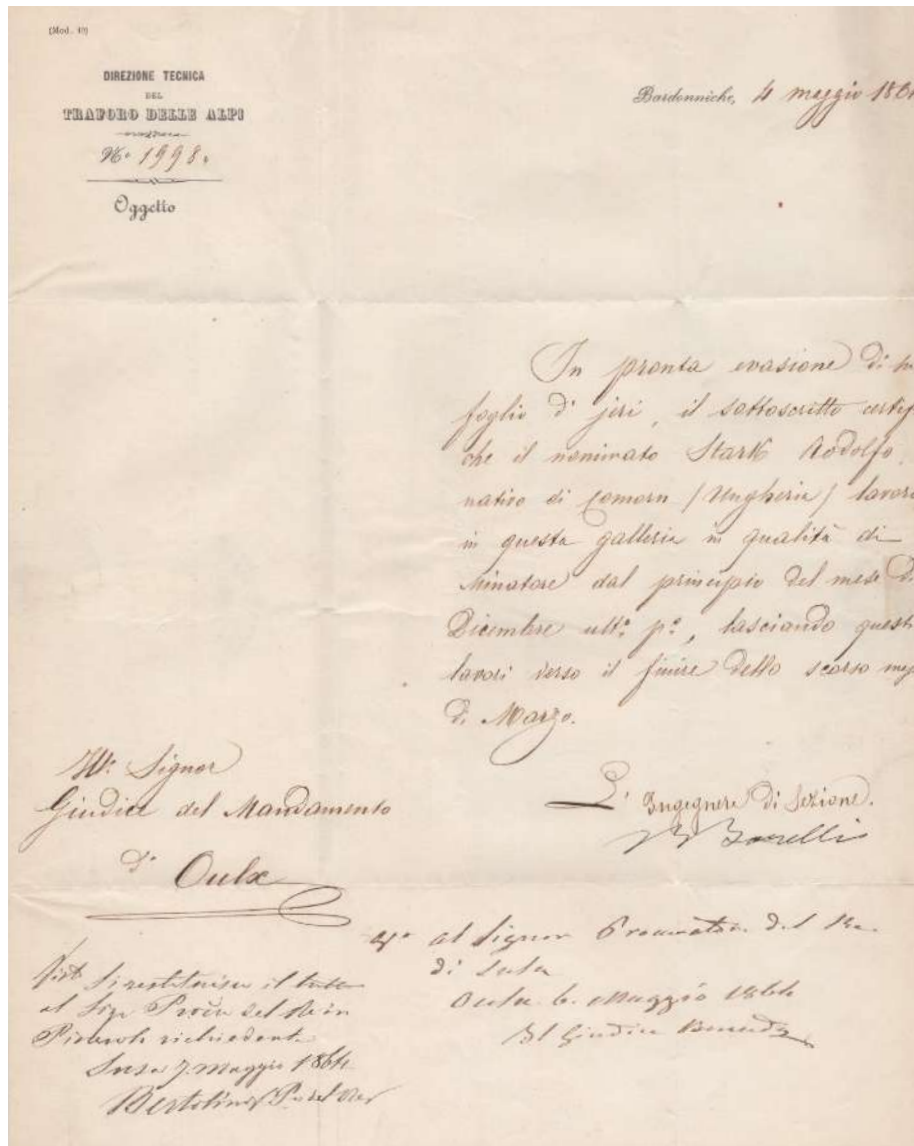 (Mod. 19)
DIREZIONE TECNICA
DEL
TRAFORO DELLE ALPI
N° 1998.
Oggetto
Bardonniche, 4 maggio 186
In pronta evasione di
foglio d' jeri, il sottoscritto certif
che il nominato Stark Rodolfo,
nativo di Comorn (Ungheria) lavor
in questa galleria in qualità di
Minatore dal principio del mese d
Dicembre ult.° p.°, lasciando quest
lavori verso il finire dello scorso me
di Marzo.
L' Ingegnere di Sezione.
Borelli
Ill. Signor
Giudice del Mandamento
d' Oulx
al Signor Procuratore del Re
di Susa
Oulx 6. Maggio 1864
Il Giudice
Si restituisce il tutto
al Sigr Procre del Re in
Pinerolo richiedente
Susa 7. Maggio 1864
Bertolino P. del Re